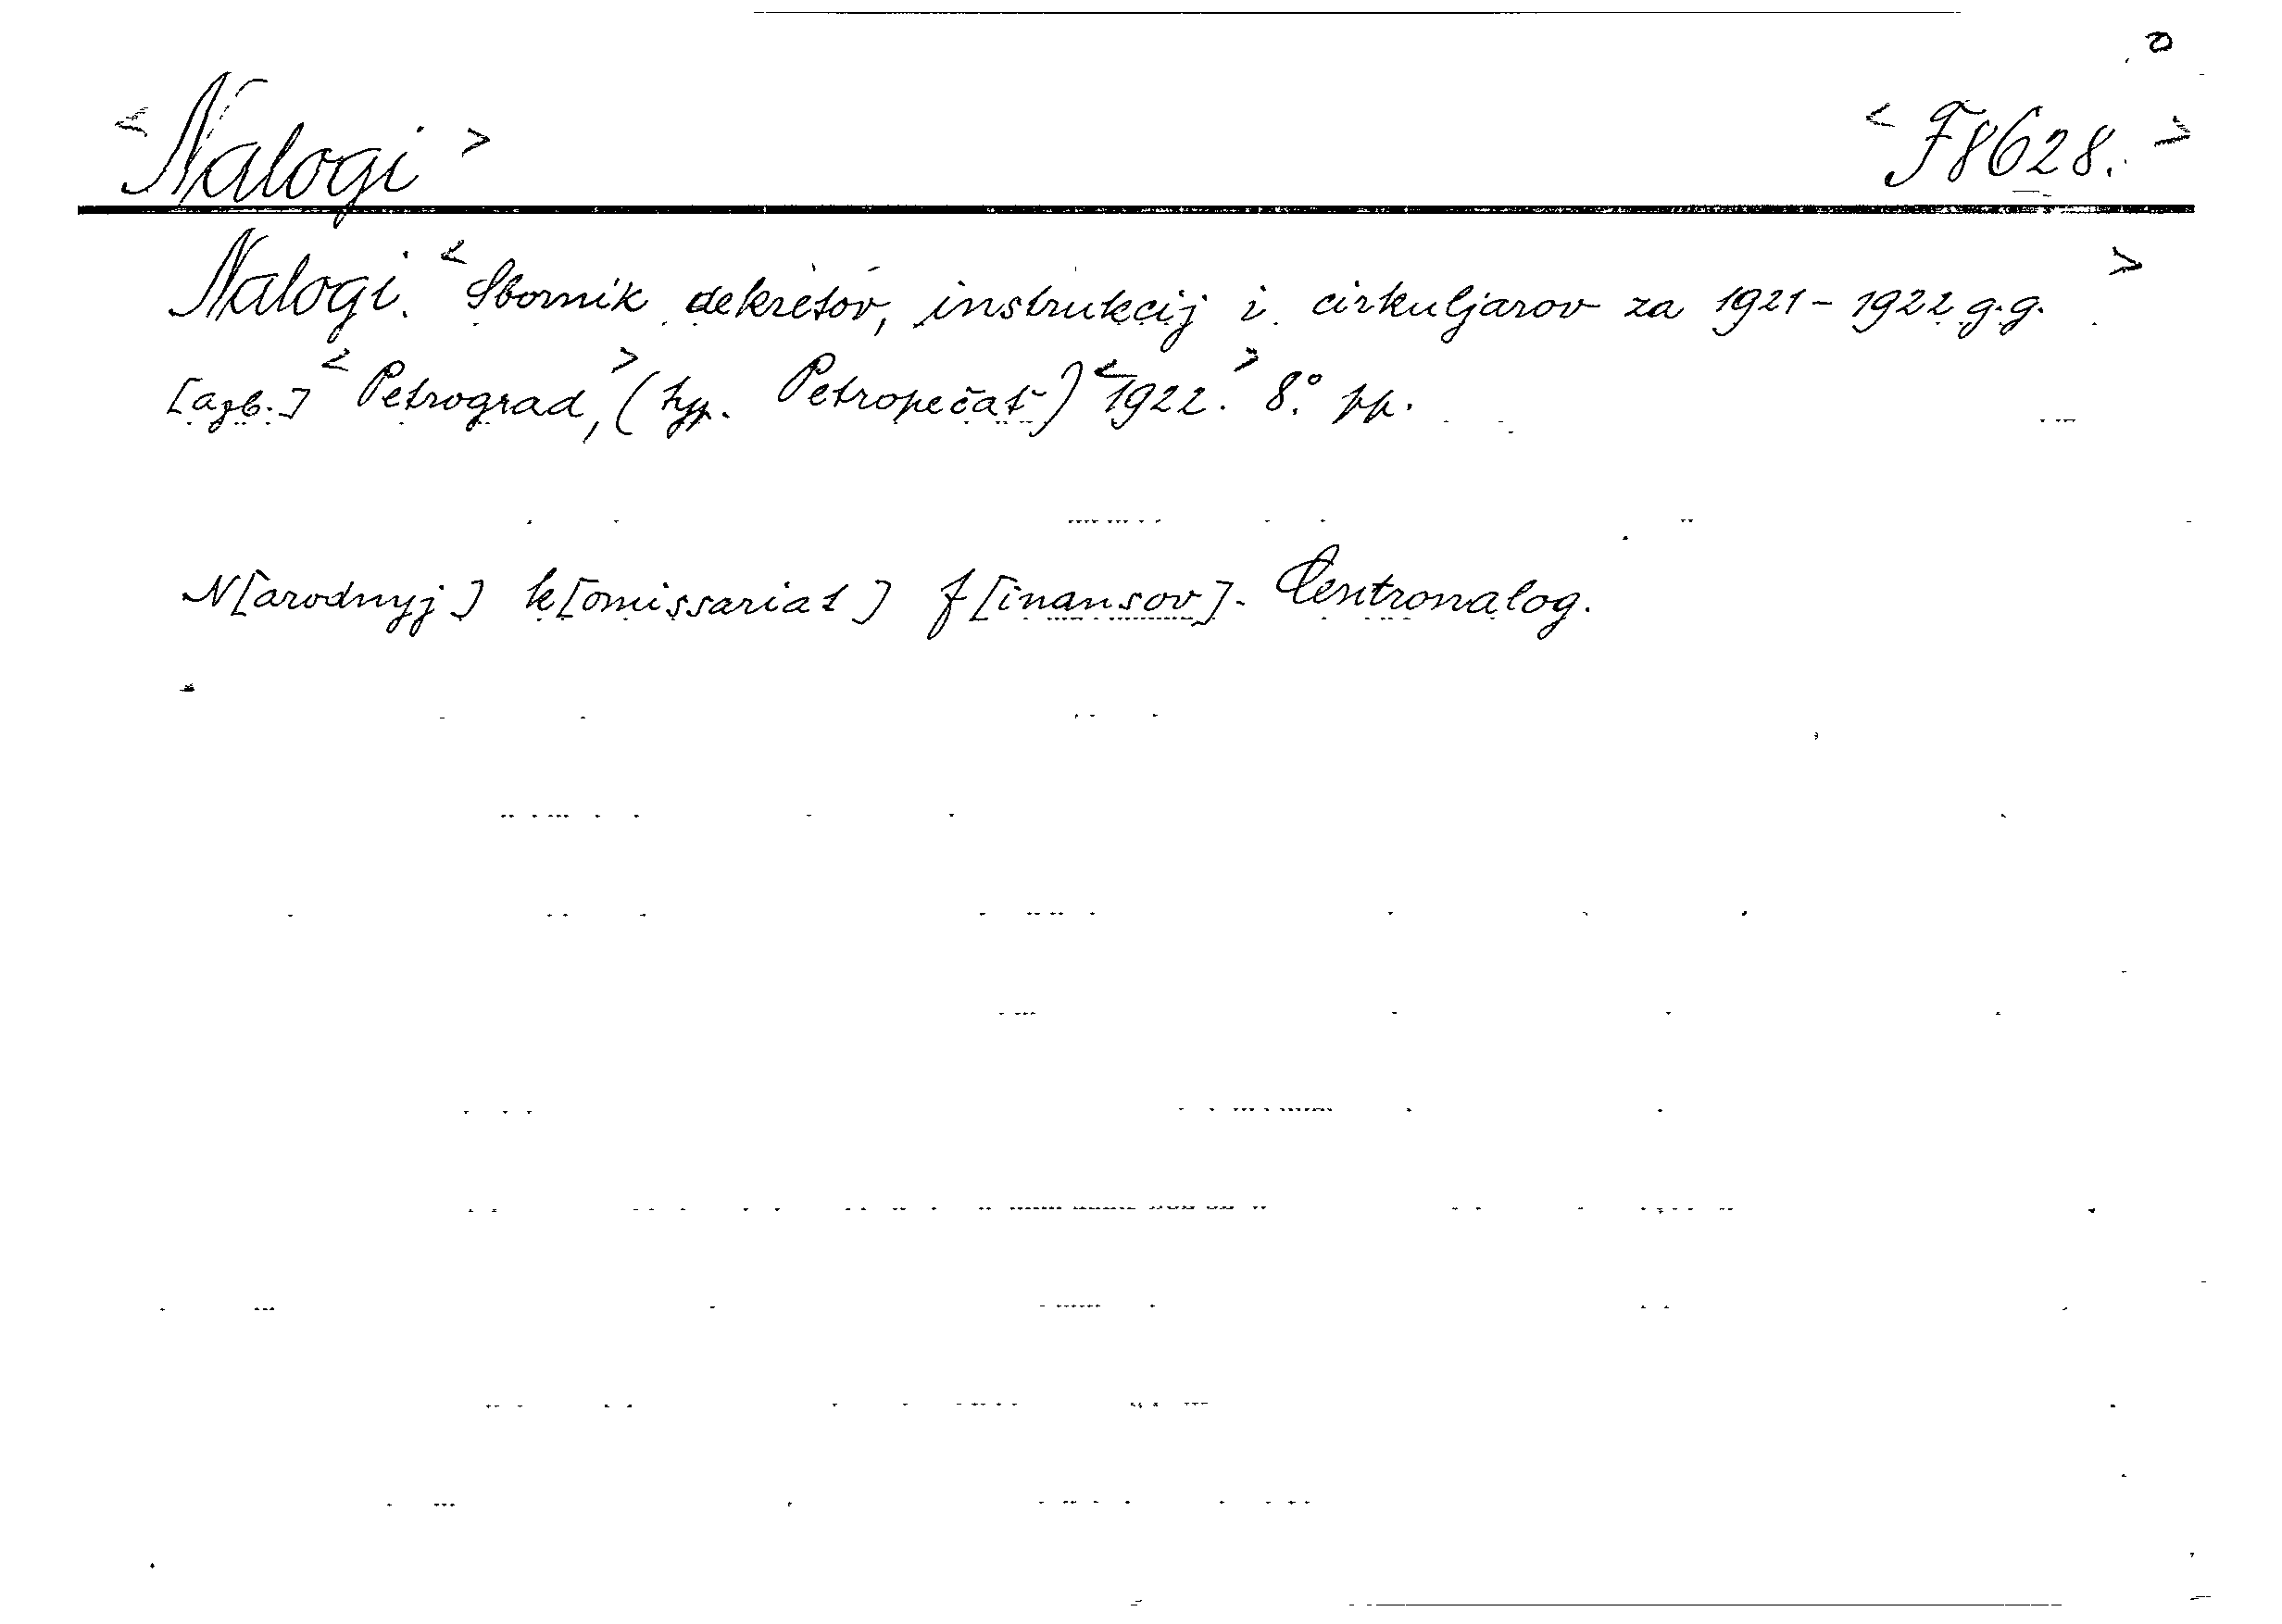 <Nalogi> <F8628.>
Nalogi. <Sbornik dekretov, instrukcij i cirkuljarov za 1921-1922 g.g.>
[azb.] <Petrograd,> (typ. Petropečat') <1922.> 8° pp.
N[arodnyj] k[omissariat] f[inansov]. Centronalog.